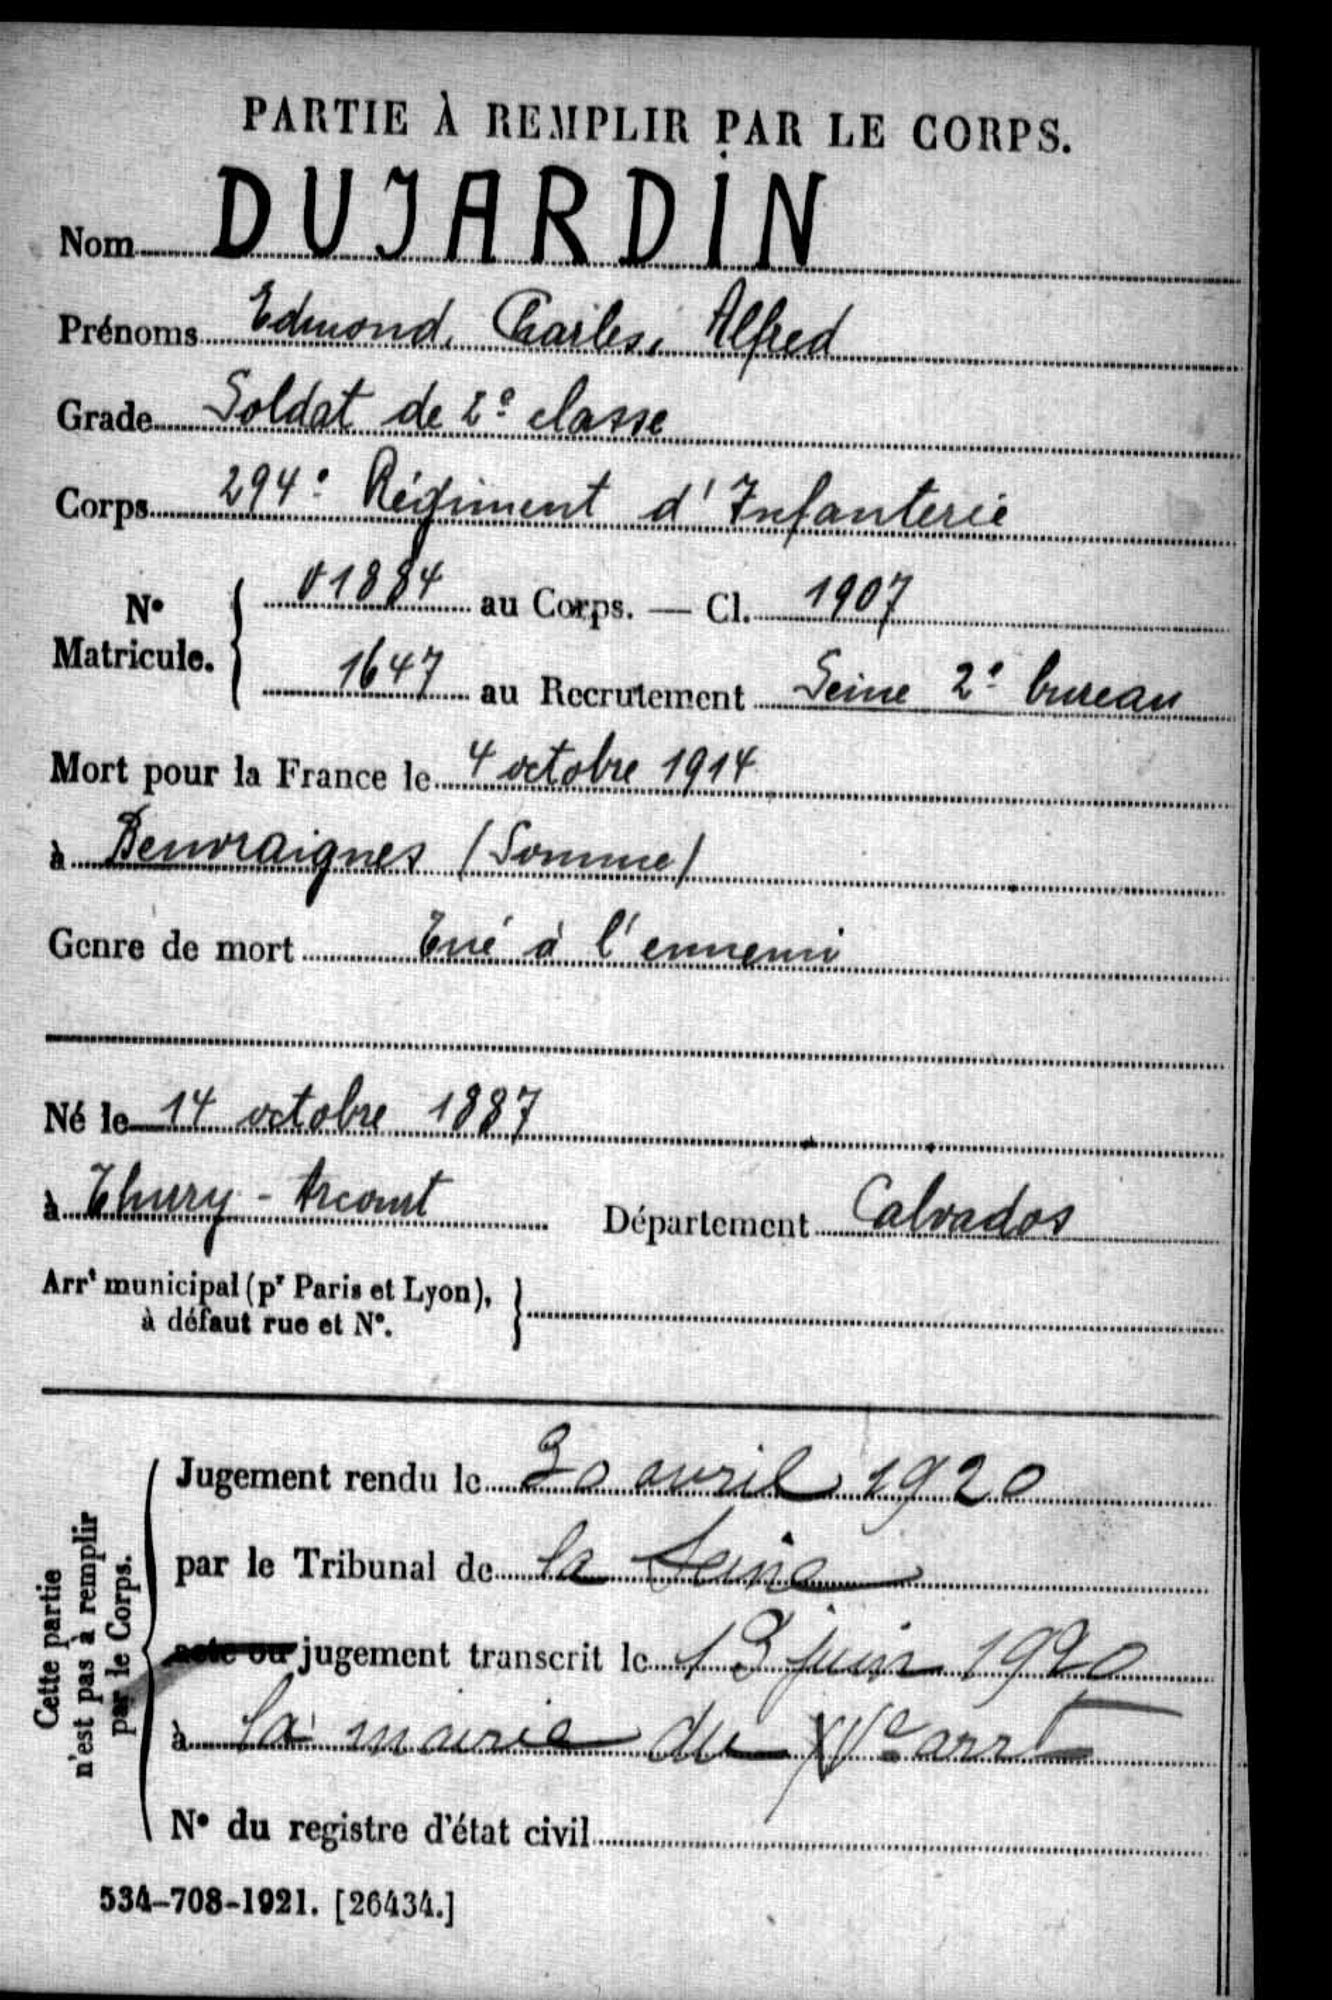 PARTIE À REMPLIR PAR LE CORPS.
Nom DUJARDIN
Prénoms Edmond, Charles, Alfred
Grade Soldat de 2e classe
Corps 294e Régiment d'Infanterie
N° Matricule. { 01884 au Corps. — Cl. 1907
1647 au Recrutement Seine 2e bureau
Mort pour la France le 4 octobre 1914
à Beuvraignes (Somme)
Genre de mort Tué à l'ennemi
Né le 14 octobre 1887
à Thury-Arcourt Département Calvados
Arrt municipal (pr Paris et Lyon), }
à défaut rue et N°.
Cette partie
n'est pas à remplir
par le Corps.
Jugement rendu le 30 avril 1920
par le Tribunal de la Seine
acte ou jugement transcrit le 13 juin 1920
à la mairie du XVe arrt
N° du registre d'état civil
534-708-1921. [26434.]